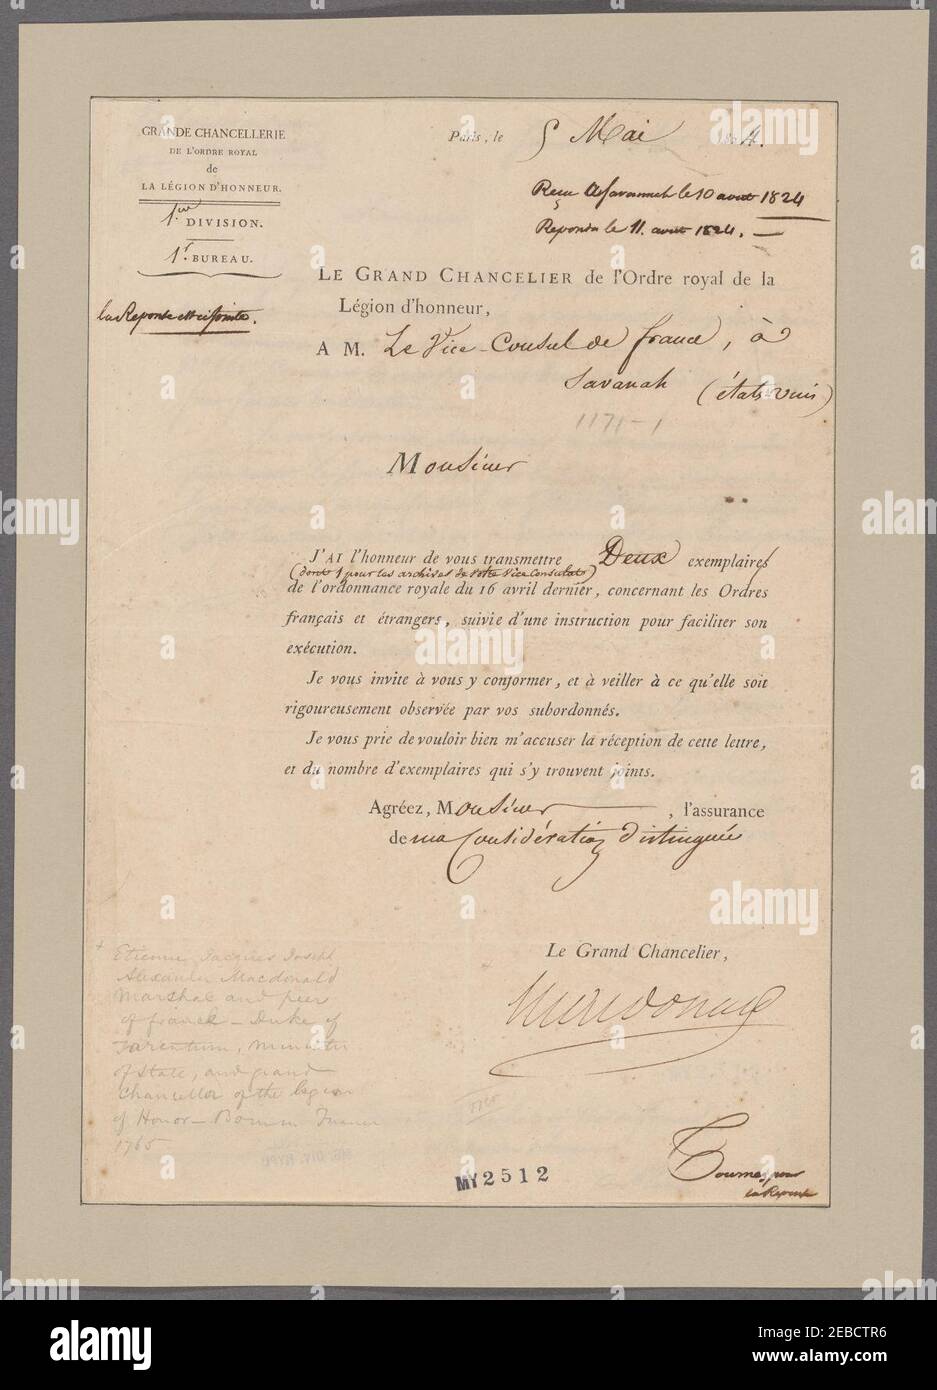 GRANDE CHANCELLERIE
DE L'ORDRE ROYAL
de
LA LÉGION D'HONNEUR.
1ère DIVISION.
1r. BUREAU.
la Reponse est ci jointe.
Paris, le 5 Mai 1824.
Reçu a Savannah le 10 aout 1824
Repondu le 11. aout 1824.
LE GRAND CHANCELIER de l'Ordre royal de la
Légion d'honneur,
A M. Le Vice-Consul de france, à
Savanah (états unis)
1171-1
Monsieur
J'AI l'honneur de vous transmettre Deux exemplaires
(dont 1 pour les archives de votre Vice Consulat)
de l'ordonnance royale du 16 avril dernier, concernant les Ordres
français et étrangers, suivie d'une instruction pour faciliter son
exécution.
Je vous invite à vous y conformer, et à veiller à ce qu'elle soit
rigoureusement observée par vos subordonnés.
Je vous prie de vouloir bien m'accuser la réception de cette lettre,
et du nombre d'exemplaires qui s'y trouvent joints.
Agréez, Monsieur, l'assurance
de ma Considération distinguée
Le Grand Chancelier,
Macdonald
Etienne Jacques Joseph
Alexander Macdonald
Marshal and peer
of france - Duke of
Tarentum, Minister
of State, and grand
Chancellor of the legion
of Honor - Born in France
1765
MY 2512
Tournez pour
la Reponse
alamy
Image ID: 2EBCTR6
www.alamy.com